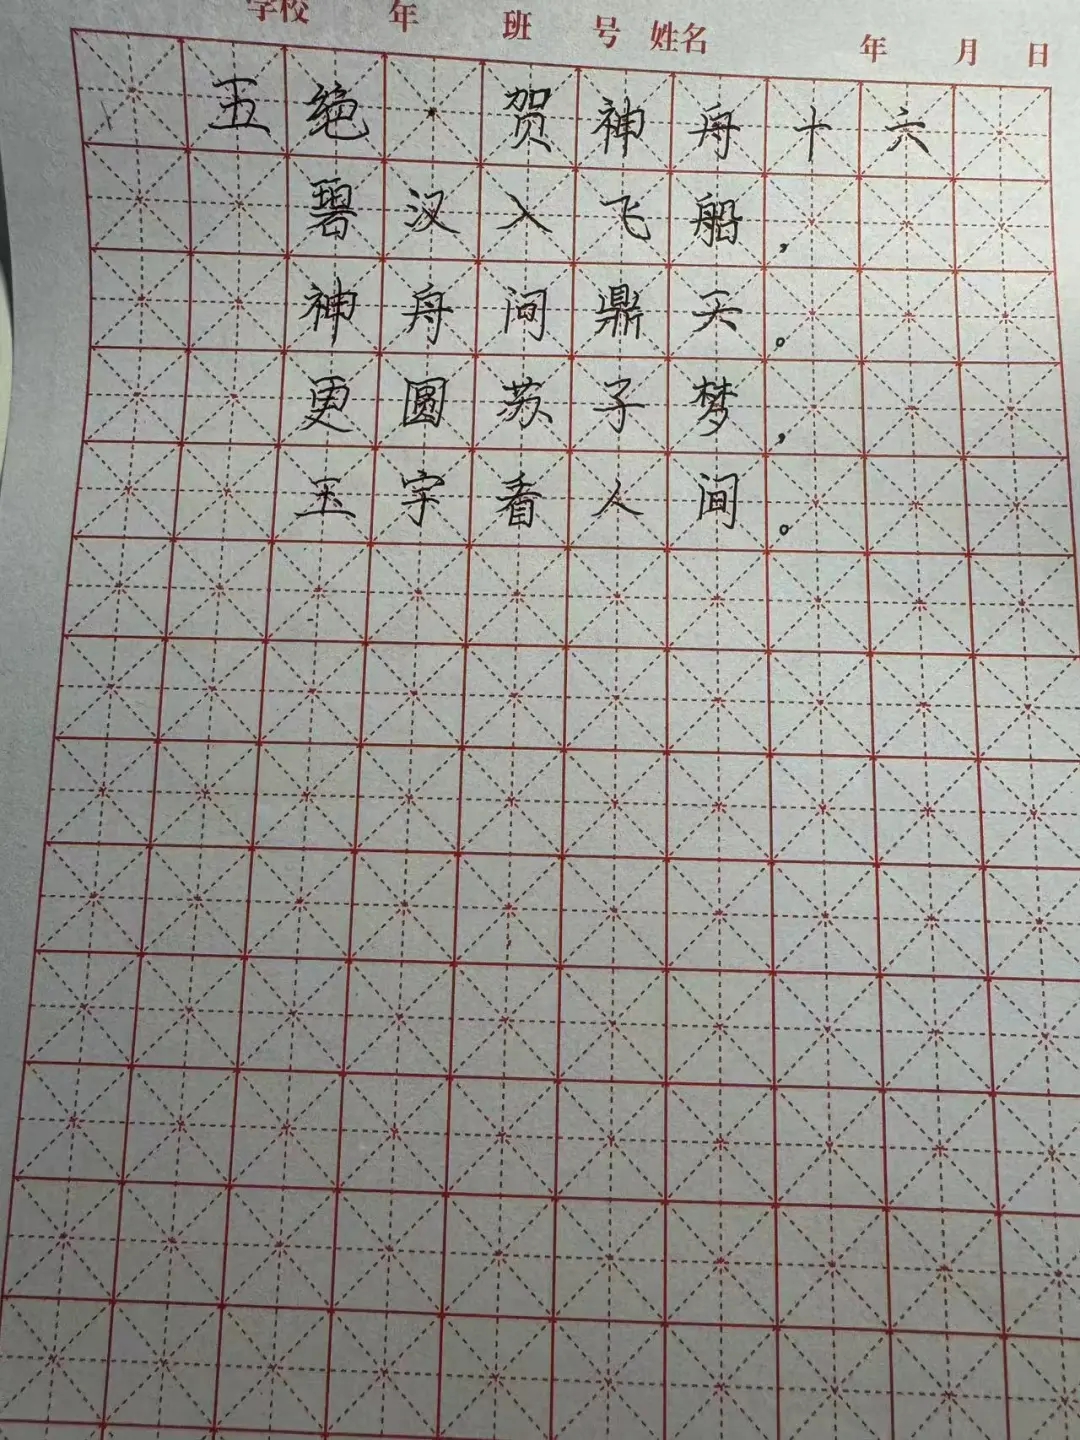 学校 年 班 号 姓名 年 月 日
五绝·贺神舟十六
碧汉入飞船，
神舟问鼎天。
更圆苏子梦，
玉宇看人间。